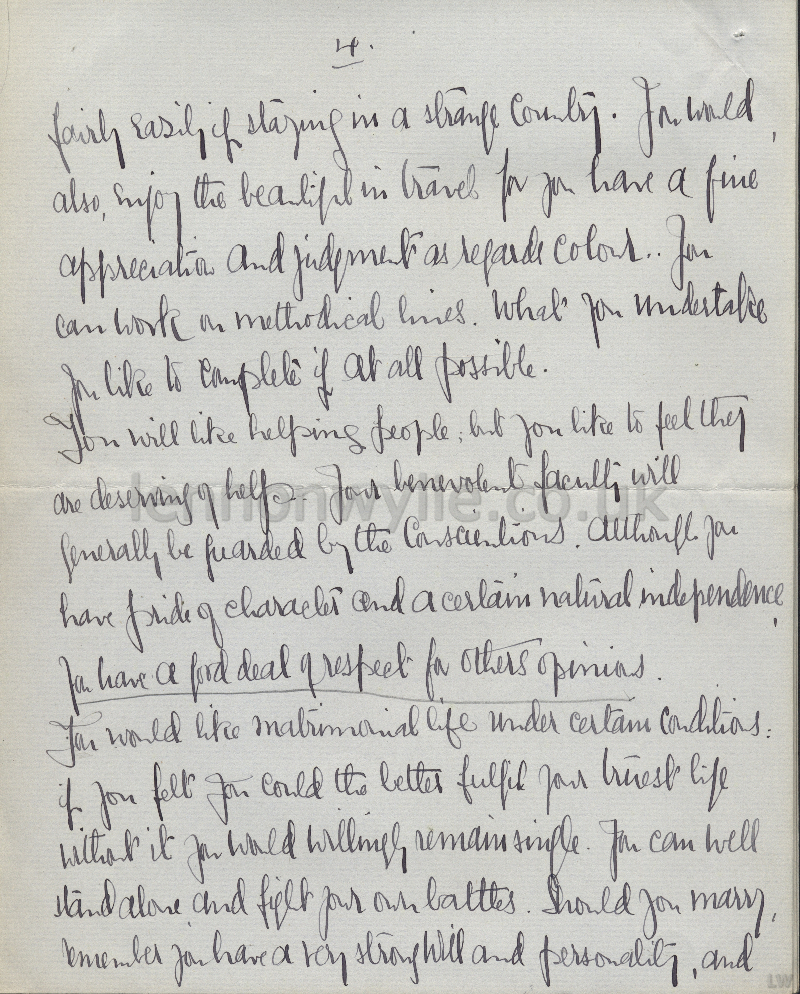 4.
fairly easily if staying in a strange country. You would,
also, enjoy the beautiful in travel for you have a fine
appreciation and judgment as regards colour.. You
can work on methodical lines. What you undertake
you like to complete if at all possible.
You will like helping people; but you like to feel they
are deserving of help. Your benevolent faculty will
lennonwylie.co.uk
generally be guarded by the Conscientious. Although you
have pride of character and a certain natural independence,
you have a good deal of respect for others opinions.
You would like matrimonial life under certain conditions:
if you felt you could the better fulfil your truest life
without it you would willingly remain single. You can well
stand alone and fight your own battles. Should you marry,
remember you have a very strong Will and personality, and
LW